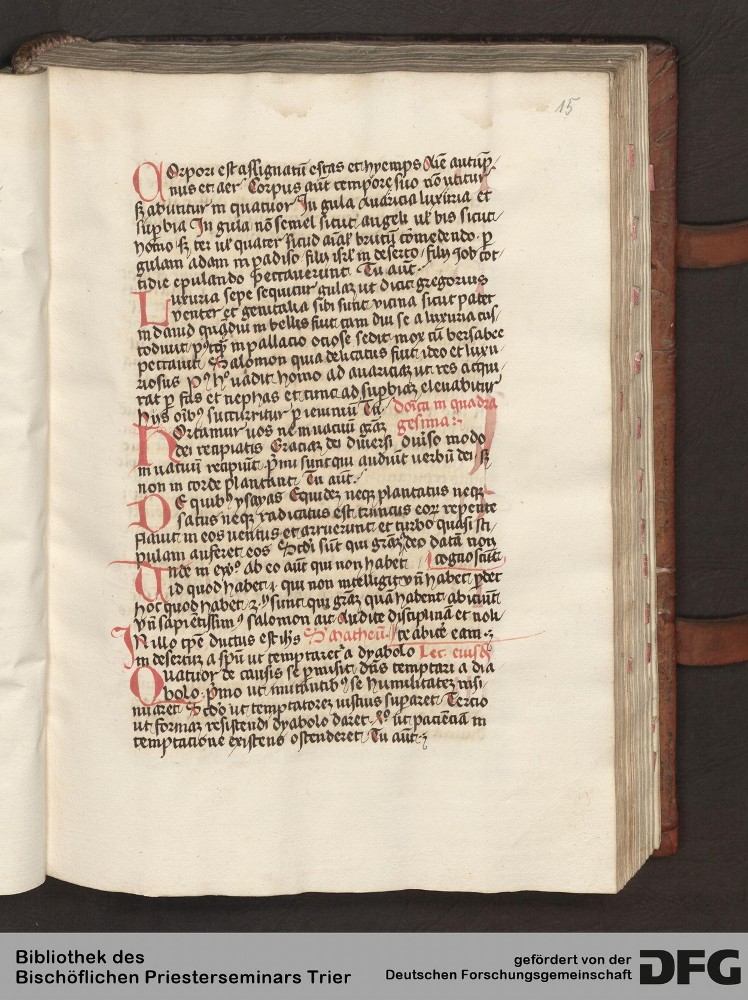 15
Corpori est assignatū estas et hyemps Siē autūp
nus et aer Corpus aūt tempore suo nō utitur
sꝫ abutitur in quatuor In gula Auaricia luxuria et
supbia In gula nō semel sicut angeli ul' bis sicut
homo sꝫ ter ul' quater sicud aīal' brutū comedendo p
gulam adam in padiso filij isrl' in deserto filij Job cot
tidie epulando peccauerunt Tu aut
Luxuria sepe sequitur gulaꝫ ut dicit gregorius
venter et genitalia sibi sunt vicina sicut patet
in dauid quādiu in bellis fuit tam diu se a luxuria cus
todiuit in pallacio ociose sedit mox cū bersabee
peccauit Salomon quia delicatus fuit ideo et luxu
riosus uadit homo ad auariciaꝫ ut res acqui
rat p fas et nephas et tunc ad supbiaꝫ eleuabitur
hijs oībꝰ succurritur p ieiuniū Tu dōica in quadra
Hortamur uos ne in uacuū grāꝫ gesima
dei recipiatis Graciaꝫ dei diuersi diuiso modo
in uacuū recipiūt pmi sunt qui audiunt uerbū dei sꝫ
non in corde plantant Tu aut
De quibꝰ ysayas Equidē neqꝫ plantatus neqꝫ
satus neqꝫ radicatus est truncus eorꝫ repente
flauit in eos uentus et aruerunt et turbo quasi sti
pulam auferet eos Scdi sūt qui grāꝫ deo datā non
Unde in ab eo aūt qui non habet cognoscūt
id quod habet qui non intelligit habet pdet
hoc quod habet sunt qui grāꝫ quā habent abiciūt
vn sapientissimꝰ salomon ait Audite disciplinā et noli
In illo tpe ductus est ihs Matheū te abicē eam
in desertū a spū ut temptaret a dyabolo Lec eiusdꝫ
Quatuor de causis se pmisit dūs temptari a dia
bolo pmo ut inuitantibꝰ se humilitateꝫ insi
nuaret Scdo ut temptatoreꝫ iustius supāret Tercio
ut formaꝫ resistendi dyabolo daret ut pacienciā in
temptacione existens ostenderet Tu aut
Bibliothek des
Bischöflichen Priesterseminars Trier
gefördert von der
Deutschen Forschungsgemeinschaft
DFG